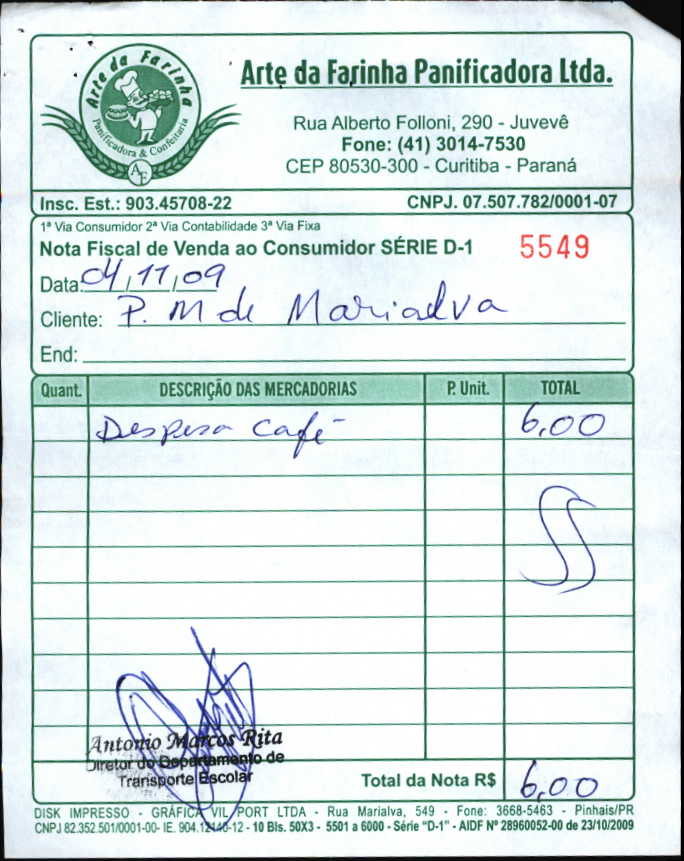 Arte da Farinha
Panificadora & Confeitaria
AF
Arte da Farinha Panificadora Ltda.
Rua Alberto Folloni, 290 - Juvevê
Fone: (41) 3014-7530
CEP 80530-300 - Curitiba - Paraná
Insc. Est.: 903.45708-22
CNPJ. 07.507.782/0001-07
1ª Via Consumidor 2ª Via Contabilidade 3ª Via Fixa
Nota Fiscal de Venda ao Consumidor SÉRIE D-1 5549
Data: 04/11/09
Cliente: P. M de Marialva
End:
Quant. DESCRIÇÃO DAS MERCADORIAS P. Unit. TOTAL
Despesa café 6,00
Antonio Marcos Rita
Diretor do Departamento de
Transporte Escolar
Total da Nota R$ 6,00
DISK IMPRESSO - GRÁFICA VIL PORT LTDA - Rua Marialva, 549 - Fone: 3668-5463 - Pinhais/PR
CNPJ 82.352.501/0001-00- IE. 904.12140-12 - 10 Bls. 50X3 - 5501 a 6000 - Série “D-1” - AIDF Nº 28960052-00 de 23/10/2009